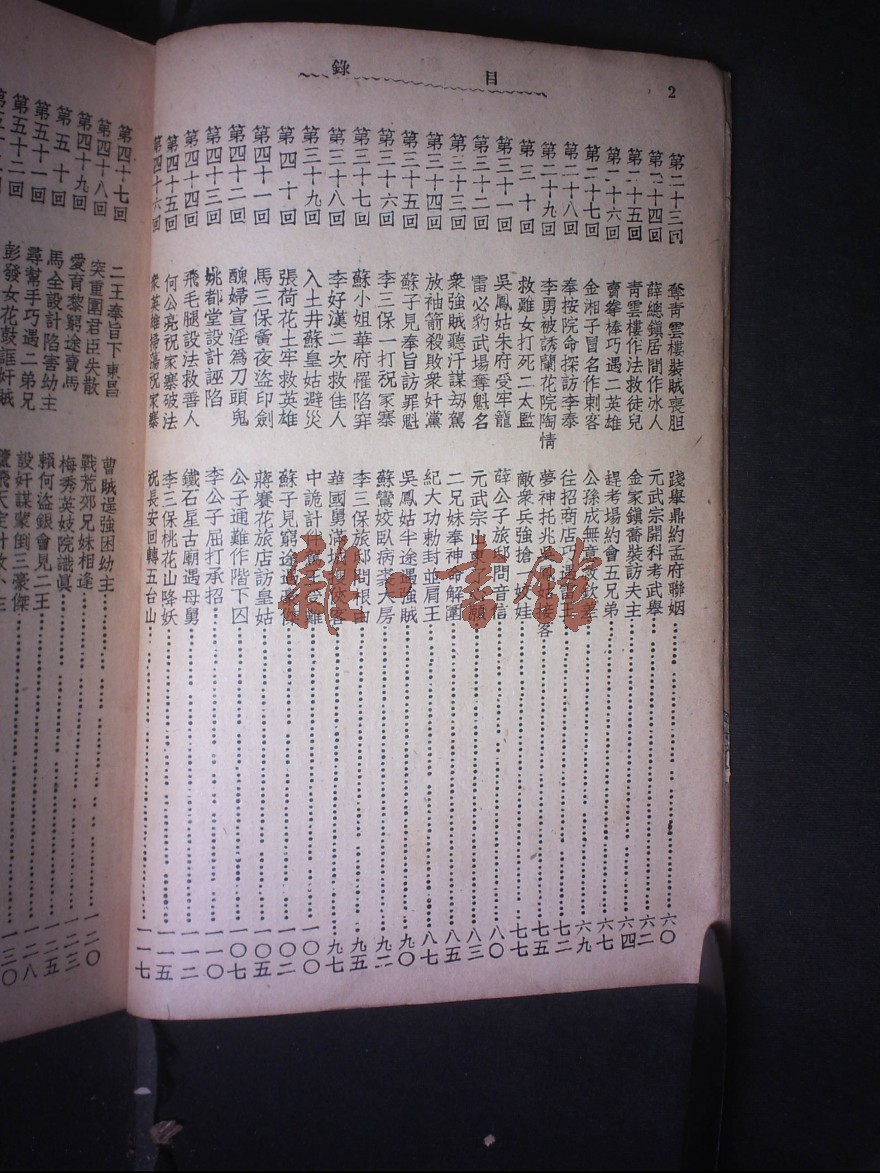 2
目錄
第二十三回 奪靑雲樓裝賊喪胆 踐舉鼎約孟府聯姻 六〇
第二十四回 薛總鎭居間作冰人 元武宗開科考武舉 六二
第二十五回 靑雲樓作法救徒兒 金家鎭喬裝訪夫主 六四
第二十六回 賣拳棒巧遇二英雄 趕考場約會五兄弟 六七
第二十七回 金湘子冒名作刺客 公孫成無意 六九
第二十八回 奉按院命探訪李泰 往招商店巧遇 七二
第二十九回 李勇被誘蘭花院陶情 夢神托兆吳 客 七五
第三十回 救難女打死二太監 敵衆兵強搶一妖娃 七七
第三十一回 吳鳳姑朱府受牢籠 薛公子旅邸問音信 八〇
第三十二回 雷必豹武場奪魁名 元武宗山東 願 八三
第三十三回 衆強賊聽汗謀刼駕 二兄妹奉神命解圍 八五
第三十四回 放袖箭殺敗衆奸黨 紀大功勅封並肩王 八七
第三十五回 蘇子見奉旨訪罪魁 吳鳳姑半途遇強賊 九〇
第三十六回 李三保一打祝家寨 蘇鸞姣臥病 房 九二
第三十七回 蘇小姐華府罹陷穽 李三保旅邸問根由 九五
第三十八回 李好漢二次救佳人 華國舅滿 俠客 九七
第三十九回 入土井蘇皇姑避災 中詭計絆 難 一〇〇
第四十回 張荷花土牢救英雄 蘇子見窮途遇 一〇二
第四十一回 馬三保黃夜盜印劍 蔣賽花旅店訪皇姑 一〇五
第四十二回 醜婦宣淫爲刀頭鬼 公子通難作階下囚 一〇七
第四十三回 姚都堂設計誣陷 李公子屈打承招 一一〇
第四十四回 飛毛腿設法救善人 鐵石星古廟遇母舅 一一二
第四十五回 何公亮祝家寨破法 李三保桃花山降妖 一一五
第四十六回 衆英雄掃蕩祝家寨 祝長安回轉五台山 一一七
第四十七回 二王奉旨下東昌 曹賊逞強困幼主 一二〇
第四十八回 突重圍君臣失散 戰荒郊兄妹相逢 一二三
第四十九回 愛育黎窮途賣馬 梅秀英妓院識眞 一二五
第五十回 馬全設計陷害幼主 賴何盜銀會見二王 一二八
第五十一回 尋幫手巧遇二弟兄 設奸謀蒙倒三豪傑 一三〇
第五十二回 彭發女花鼓誆奸賊
雜·書館